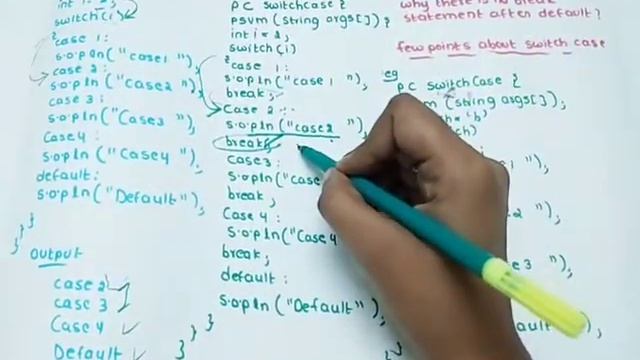 int i = 2;
switch(i)
{
case 1:
s.o.pln("case1");
case 2:
s.o.pln("case2");
case 3:
s.o.pln("Case3");
Case4:
s.o.pln("Case4");
default:
s.o.pln("Default");
}
}
}
output
case 2
case 3
Case 4
Default
pc switchcase {
psvm (string args[]) {
int i = 2;
switch(i)
{
case 1:
s.o.pln("case1");
break;
Case 2:
s.o.pln("case2");
break;
Case3:
s.o.pln("Case
break;
Case 4:
s.o.pln("Case4
break;
default:
s.o.pln("Default");
}
}
}
why there is no break
statement after default?
few points about switch case
eg
pc switchCase {
(string args[]);